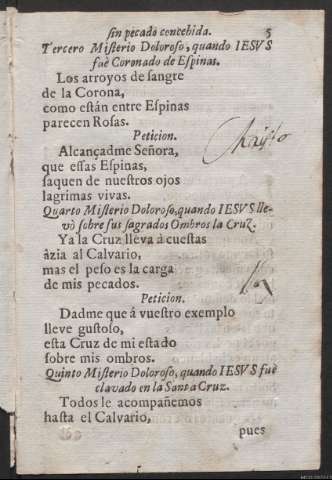 sin pecado concebida. 5
Tercero Misterio Doloroso, quando IESVS
fuè Coronado de Espinas.
Los arroyos de sangre
de la Corona,
como están entre Espinas
parecen Rosas.
Peticion.
Alcançadme Señora,
que essas Espinas,
saquen de nuestros ojos
lagrimas vivas.
Quarto Misterio Doloroso, quando IESVS lle-
vò sobre sus sagrados Ombros la Cruz.
Ya la Cruz lleva à cuestas
àzia al Calvario,
mas el peso es la carga
de mis pecados.
Peticion.
Dadme que á vuestro exemplo
lleve gustoso,
esta Cruz de mi estado
sobre mis ombros.
Quinto Misterio Doloroso, quando IESVS fuè
clavado en la Santa Cruz.
Todos le acompañemos
hasta el Calvario,
pues